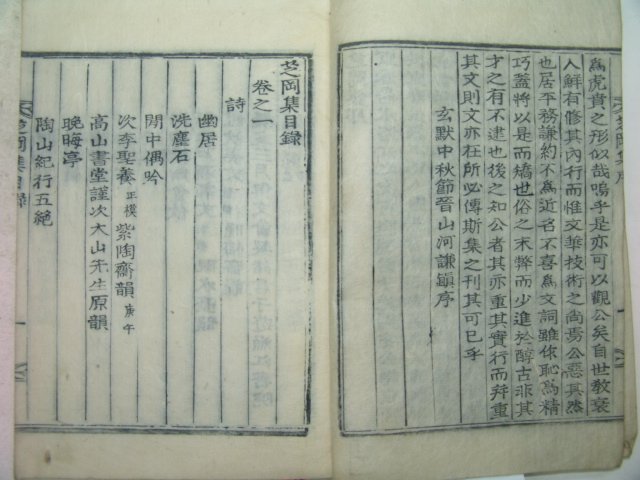 為虎賁之形似哉嗚乎是亦可以觀公矣自世敎衰
人鮮有修其內行而惟文華技術之尚焉公惡其然
也居平務謙約不為近名不喜為文詞雖依恥為精
巧蓋將以是而矯世俗之末弊而少進於醇古非其
才之有不逮也後之知公者其亦重其實行而幷重
其文則文亦在所必傳斯集之刊其可已乎
玄默中秋節晉山河謙鎭序
芝岡集目錄
卷之一
詩
幽居
洗塵石
閒中偶吟
次李聖養正模紫陶齋韻庚午
高山書堂謹次大山先生原韻
晩晦亭
陶山紀行五絶
芝岡集目錄
一